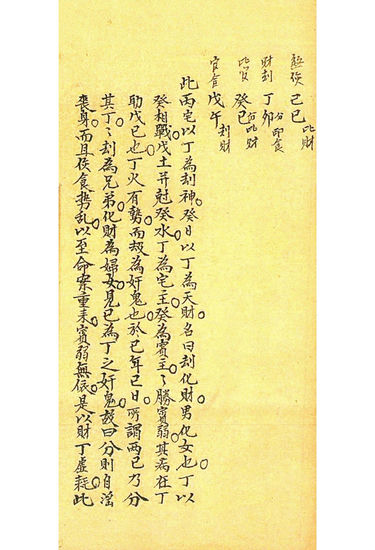 己巳 比財
財刦 丁卯 分印食
比 癸巳 比財
官食 戊午 刦財
此丙宅以丁為刦神癸日以丁為天財名曰刦化財男化女也丁以
癸相戰戊土并尅癸水丁為宅主癸為賓主主勝賓弱其病在丁
助戊已也丁火有勢而刼為奸鬼也於已年已日所謂兩已乃分
其丁丁刦為兄弟化財為婦女見已為丁之奸鬼故曰分則自淫
喪身而且侯食携乱以至命案重来賓弱無依是以財丁虛耗此